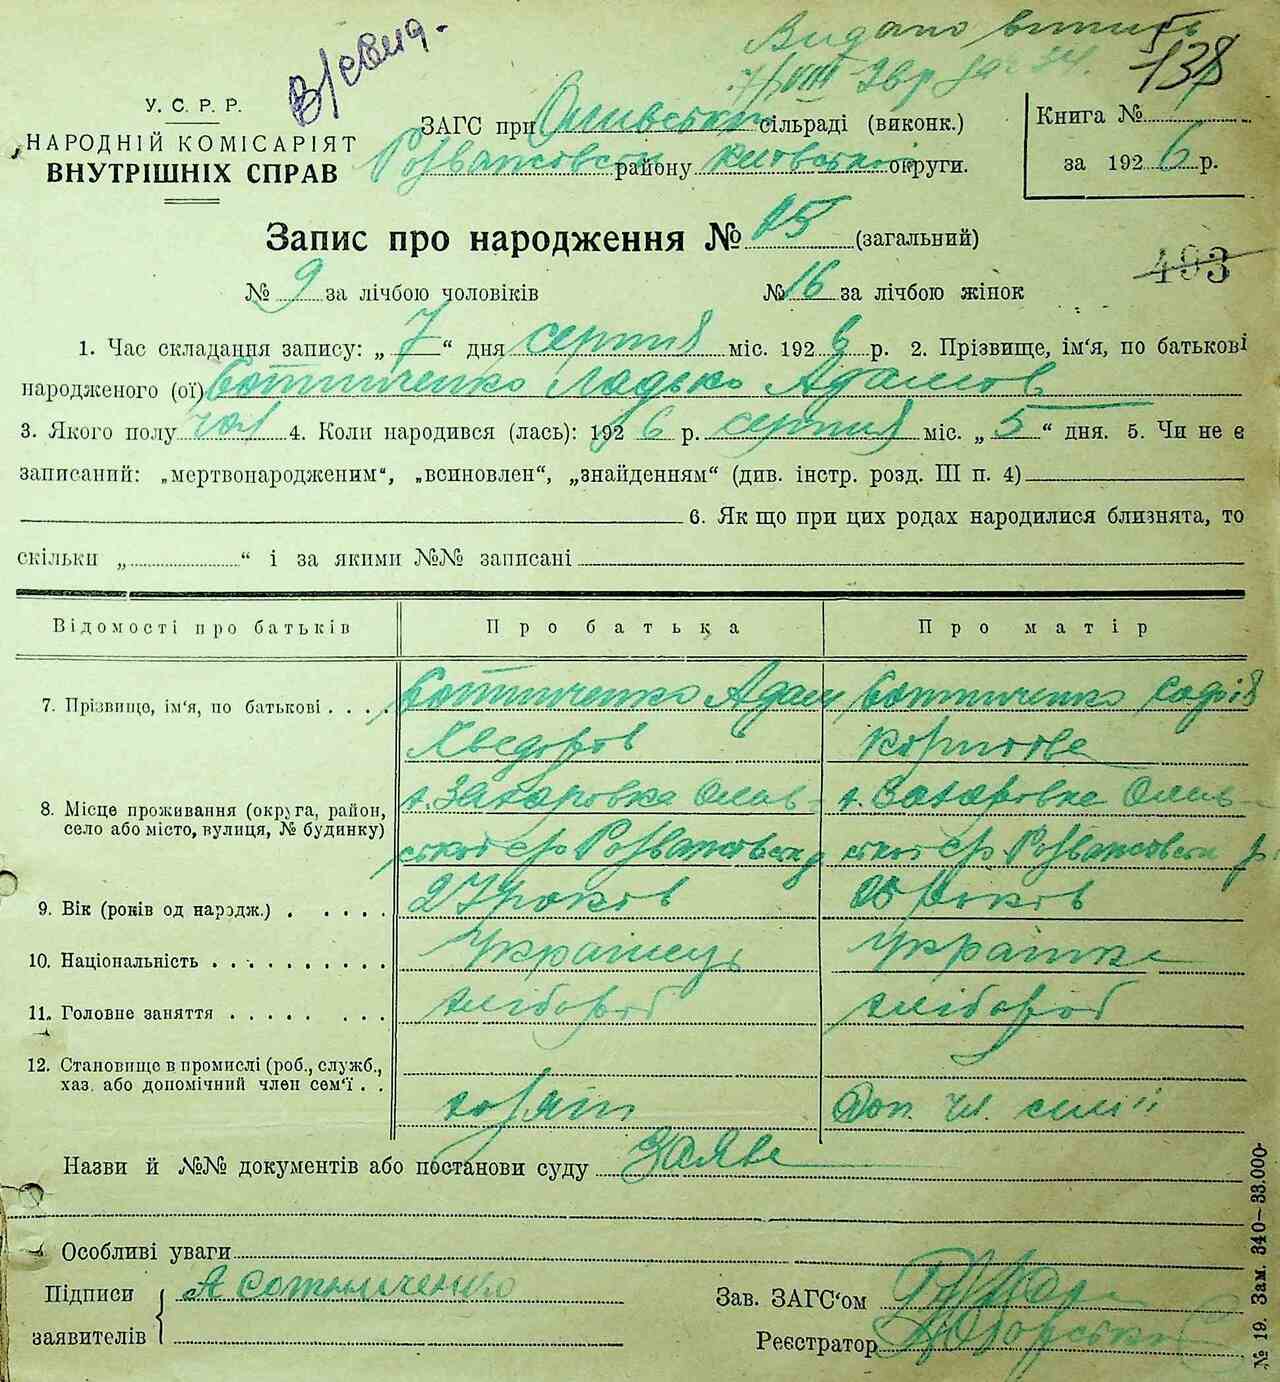 Видано витяг
138
У. С. Р. Р.
НАРОДНІЙ КОМІСАРІЯТ
ВНУТРІШНІХ СПРАВ
ЗАГС при Оливській сільраді (виконк.)
Розважівськ району київської округи.
Книга №
за 1926 р.
Запис про народження № 25 (загальний)
493
№ 9 за лічбою чоловіків № 16 за лічбою жінок
1. Час складання запису: „ 7 “ дня серпня міс. 1926 р. 2. Прізвище, ім‘я, по батькові
народженого (ої) Сотниченко Ладько Адамов
3. Якого полу чол 4. Коли народився (лась): 1926 р. серпня міс. „ 5 “ дня. 5. Чи не є
записаний: „мертвонародженим“, „всиновлен“, „знайденням“ (див. інстр. розд. III п. 4)
6. Як що при цих родах народилися близнята, то
скільки „ “ і за якими №№ записані
Відомості про батьків Про батька Про матір
7. Прізвище, ім‘я, по батькові . . . . Сотниченко Адам Сотниченко Софія
Хведоров
8. Місце проживання (округа, район,
село або місто, вулиця, № будинку)
с. Захаровка Олив- с. Захаровка Олив-
ської с/р Розважівськ р ської с/р Розважівськ р
9. Вік (років од народж.) . . . . . 27 років 25 років
10. Національність . . . . . . . . . . українець українка
11. Головне заняття . . . . . . . . хлібороб хлібороб
12. Становище в промислі (роб., служб.,
хаз. або допомічний член сем‘ї . .
хазяїн Доп. чл. сімїї
Назви й №№ документів або постанови суду Заява
Особливі уваги
Підписи
заявителів
А Сотниченко
Зав. ЗАГС‘ом
Реєстратор
№ 19. Зам. 340—33.000-